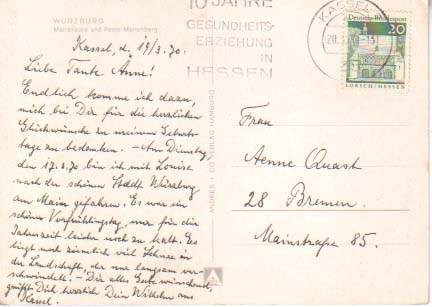 WÜRZBURG
Mainbrücke und Feste Marienberg
Kassel, d. 19/3.70.
Liebe Tante Änne!
Endlich komme ich dazu,
mich bei Dir für die herzlichen
Glückwünsche zu meinem Geburts-
tage zu bedanken. - Am Dienstag,
den 17.3.70 bin ich mit Louise
nach der schönen Stadt Würzburg
am Main gefahren. Es war ein
schöner Vorfrühlingstag, nur für die
Jahreszeit leider noch zu kalt. Es
liegt noch ziemlich viel Schnee in
der Landschaft, der nur langsam ver-
schwindet. - Dir alles Gute wünschend,
grüßt Dich herzlich Dein Wilhelm aus
Kassel.
ANDRES + CO VERLAG HAMBURG
10 JAHRE
GESUNDHEITS-
ERZIEHUNG
IN
HESSEN
KASSEL
Deutsche Bundespost
20
LORSCH/HESSEN
Frau
Aenne Quast
28 Bremen.
Mainstraße 85.